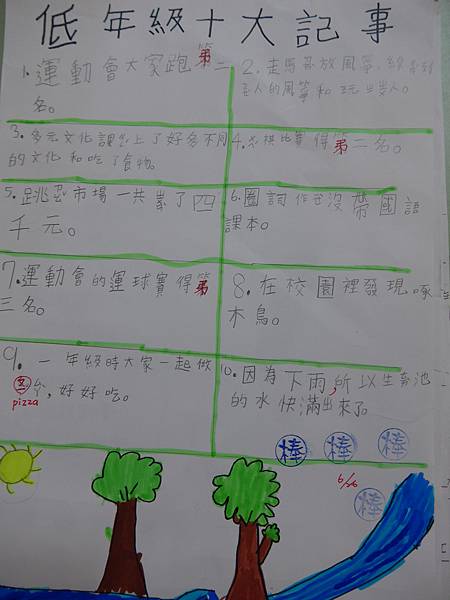 低年級十大記事
1. 運動會大家跑第二
名。
2. 走馬
人的風箏和
3. 多元文化課上了好多不同
的文化和吃了食物。
4. 比賽得第二名。
5. 跳蚤市場一共賺了四
千元。
6. 圈詞作 沒帶國語
課本。
7. 運動會的運球賽得第
三名。
8. 在校園裡發現啄
木鳥。
9. 一年級時大家一起做
pizza,好好吃。
10. 因為下雨,所以生態池
的水快滿出來了。
棒 棒 棒
6/26
棒